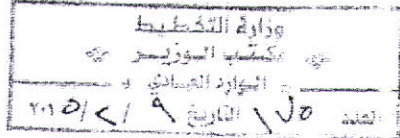 وزارة التخطيط
مكتب الوزير
الوارد العادي
العدد ١٧٥ التاريخ ٩ / ٢ / ٢٠١٥